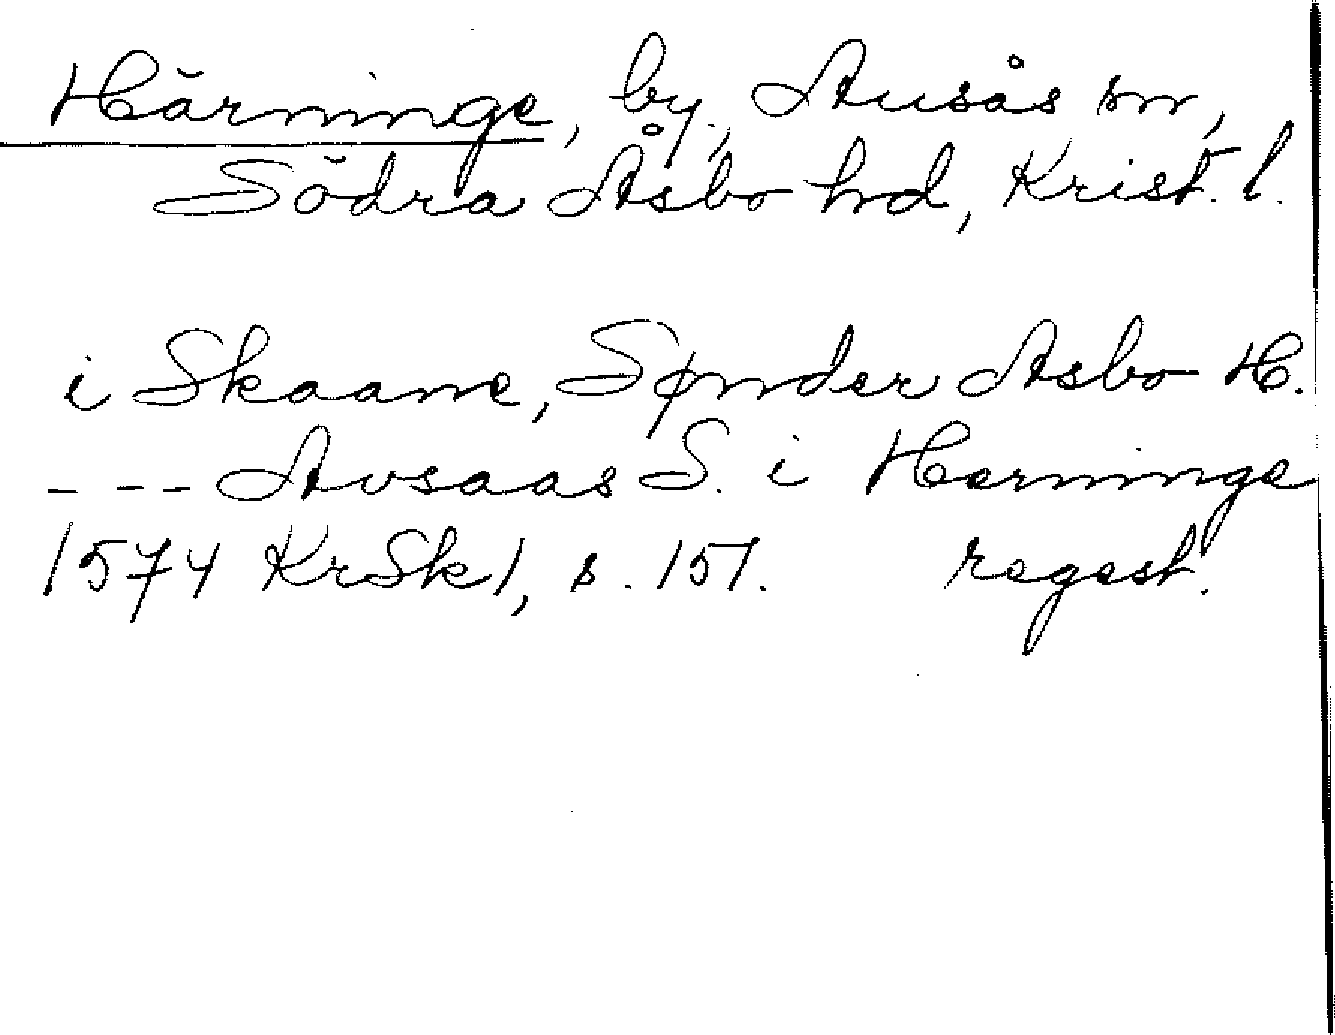 Härninge, by, Ausås sn,
Södra Åsbo hd, Krist. l.
i Skaane, Sønder Asbo H.
--- Avsaas S. i Herninge
1574 KrSk1, s. 151. regest.